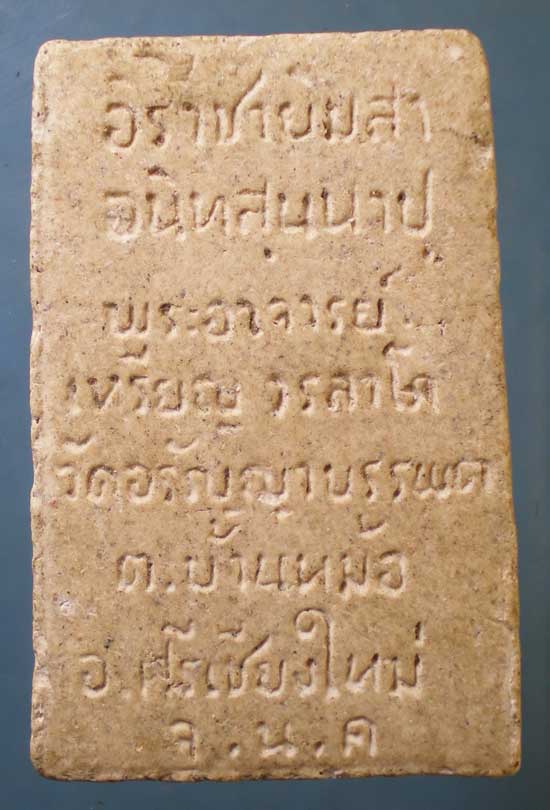 อิราชายมสา
อนิทสุนนาปุ
พระอาจารย์
เหรียญ วรลาโภ
วัดอรัญญาบรรพต
ต.บ้านหม้อ
อ.ศรีเชียงใหม่
จ.น.ค